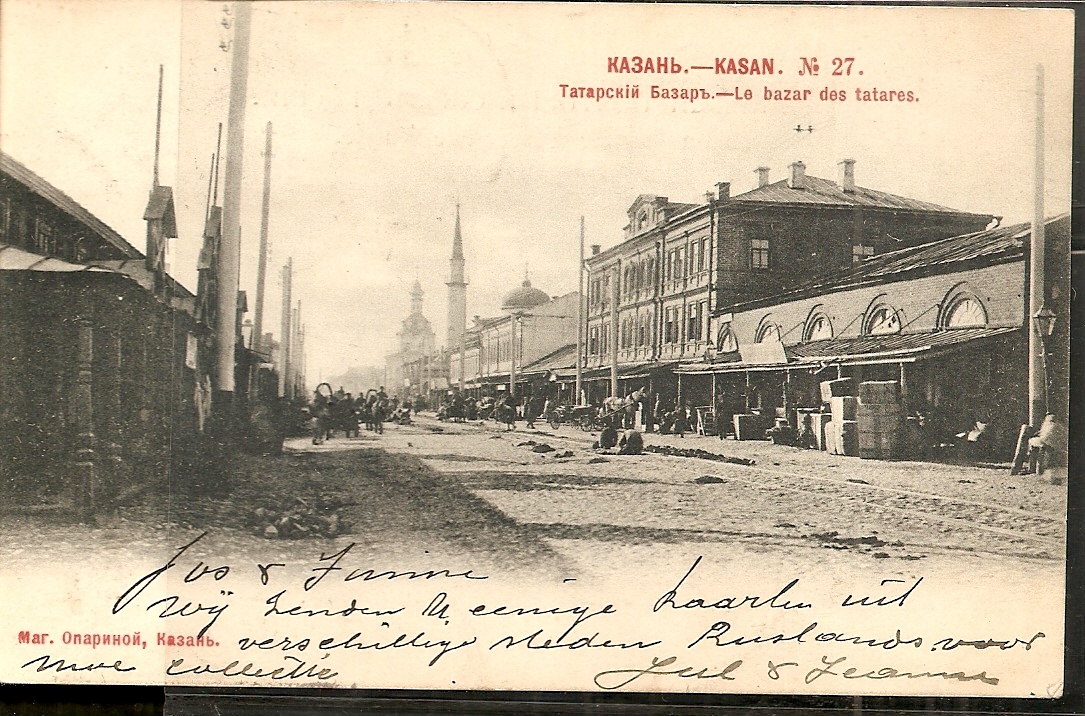 КАЗАНЬ.—KASAN. № 27.
Татарскій Базаръ.—Le bazar des tatares.
Jos &
Wij zenden U eenige kaarten uit
Маг. Опариной, Казань.
verschillige steden Ruslands voor
uwe collectie
Jul & Jeanne